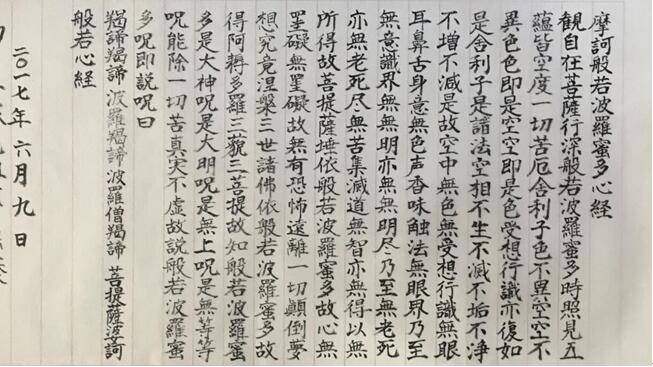 摩訶般若波羅蜜多心経
観自在菩薩行深般若波羅蜜多時照見五
蘊皆空度一切苦厄舎利子色不異空空不
異色色即是空空即是色受想行識亦復如
是舎利子是諸法空相不生不滅不垢不浄
不増不減是故空中無色無受想行識無眼
耳鼻舌身意無色声香味触法無眼界乃至
無意識界無無明亦無無明尽乃至無老死
亦無老死尽無苦集滅道無智亦無得以無
所得故菩提薩埵依般若波羅蜜多故心無
罣礙無罣礙故無有恐怖遠離一切顛倒夢
想究竟涅槃三世諸佛依般若波羅蜜多故
得阿耨多羅三藐三菩提故知般若波羅蜜
多是大神呪是大明呪是無上呪是無等等
呪能除一切苦真実不虚故説般若波羅蜜
多呪即説呪曰
羯諦羯諦 波羅羯諦 波羅僧羯諦 菩提薩婆訶
般若心経
二〇一七年六月九日